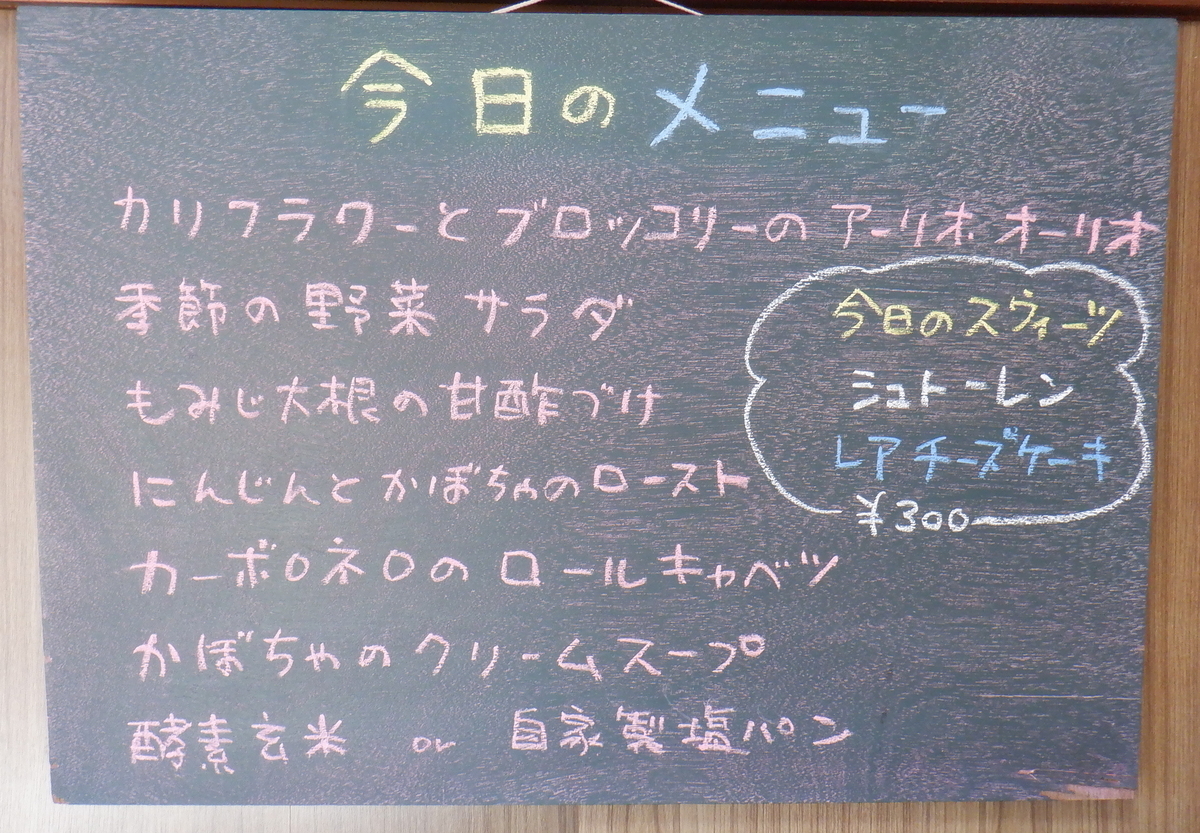 今日のメニュー
カリフラワーとブロッコリーのアーリオオーリオ
季節の野菜サラダ
もみじ大根の甘酢づけ
にんじんとかぼちゃのロースト
カーボロネロのロールキャベツ
かぼちゃのクリームスープ
酵素玄米 or 自家製塩パン
今日のスウィーツ
シュトーレン
レアチーズケーキ
¥300